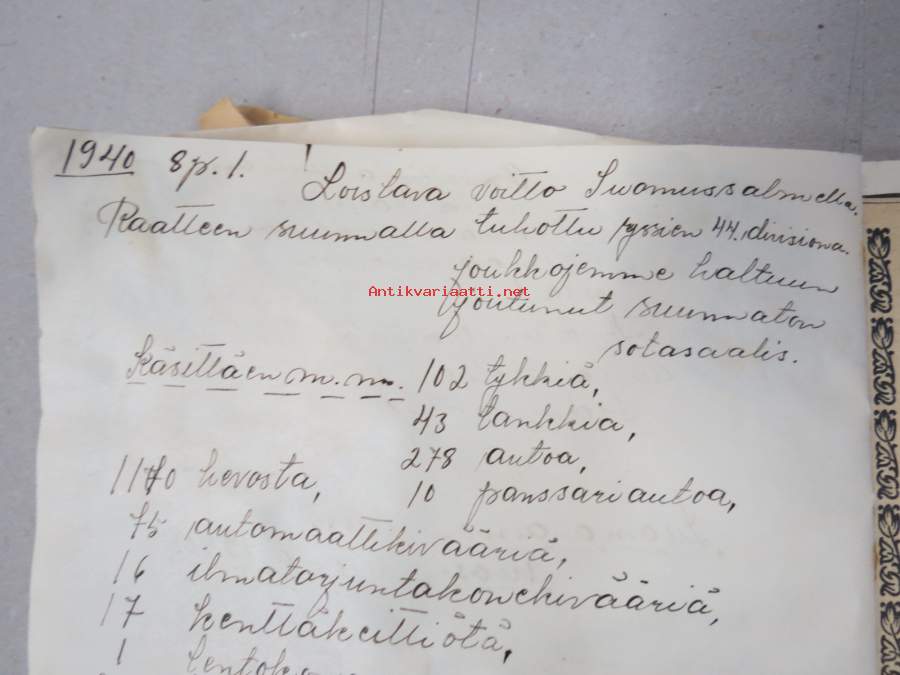 1940 8 p. 1.
Loistava voitto Suomussalmella.
Raatteen suunnalla tuhottu ryssien 44. divisiona.
joukkojemme haltuun
Antikvariaatti.net
joutunut suunnaton
sotasaalis.
Käsittäen m. m. 102 tykkiä,
43 tankkia,
278 autoa,
1170 hevosta, 10 panssariautoa,
75 automaattikivääriä,
16 ilmatorjuntakonekivääriä,
17 kenttäkeittiötä,
1